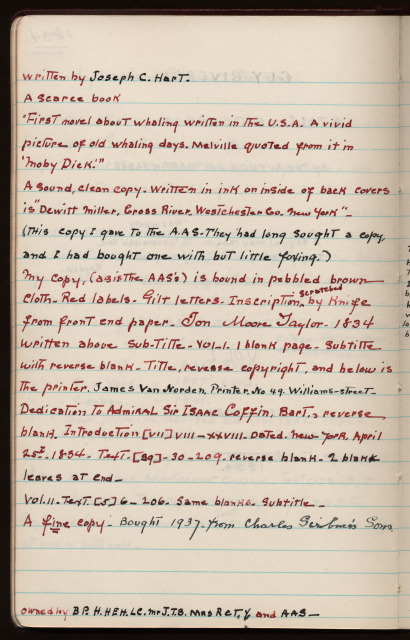 written by Joseph C. Hart.
A scarce book
"First novel about whaling written in the U.S.A. A vivid
picture of old whaling days. Melville quoted from it in
'Moby Dick.'"
A sound, clean copy. Written in ink on inside of back covers
is "Dewitt Miller, Cross River, Westchester Co. New York" -
(This copy I gave to the A.A.S. They had long sought a copy
and I had bought one with but little foxing.)
My copy, (as is the AAS's) is bound in pebbled brown
cloth. Red labels. Gilt letters. Inscription, scratched by knife
from front end paper. Jon Moore Taylor - 1834
written above sub-title. Vol. I. 1 blank page. Subtitle
with reverse blank. Title, reverse copyright, and below is
the printer, James Van Norden, Printer, No 49. Williams-street.
Dedication to Admiral Sir Isaac Coffin, Bart., reverse
blank. Introduction [VII] VIII - XXVIII. Dated. New-York, April
25th. 1834. Text. [29] - 30 - 209. reverse blank. 2 blank
leaves at end -
Vol. II. Text. [5] 6 - 206. Same blanks. Subtitle -
A fine copy. Bought 1937. from Charles Scribner's Sons.
owned by BP. H. HEH. LC. Mr J.T.B. Mas R CT, Y and AAS -